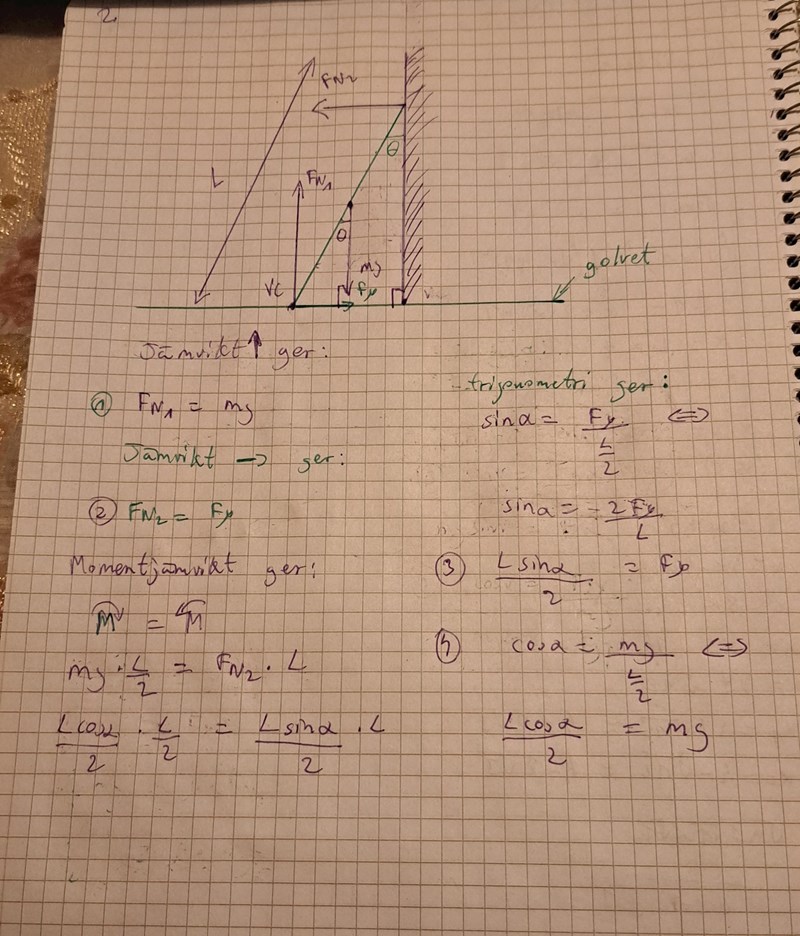 2.
FN₂
θ
L
FN₁
θ
mg
Fμ
golvet
Jämvikt ↑ ger:
① FN₁ = mg
Jämvikt → ger:
② FN₂ = Fμ
Momentjämvikt ger:
M↷ = ↶M
mg · L/2 = FN₂ · L
Lcosα/2 · L/2 = Lsinα/2 · L
trigonometri ger:
sinα = Fμ/(L/2) ⇔
sinα = 2Fμ/L
③ Lsinα/2 = Fμ
④ cosα = mg/(L/2) ⇔
Lcosα/2 = mg